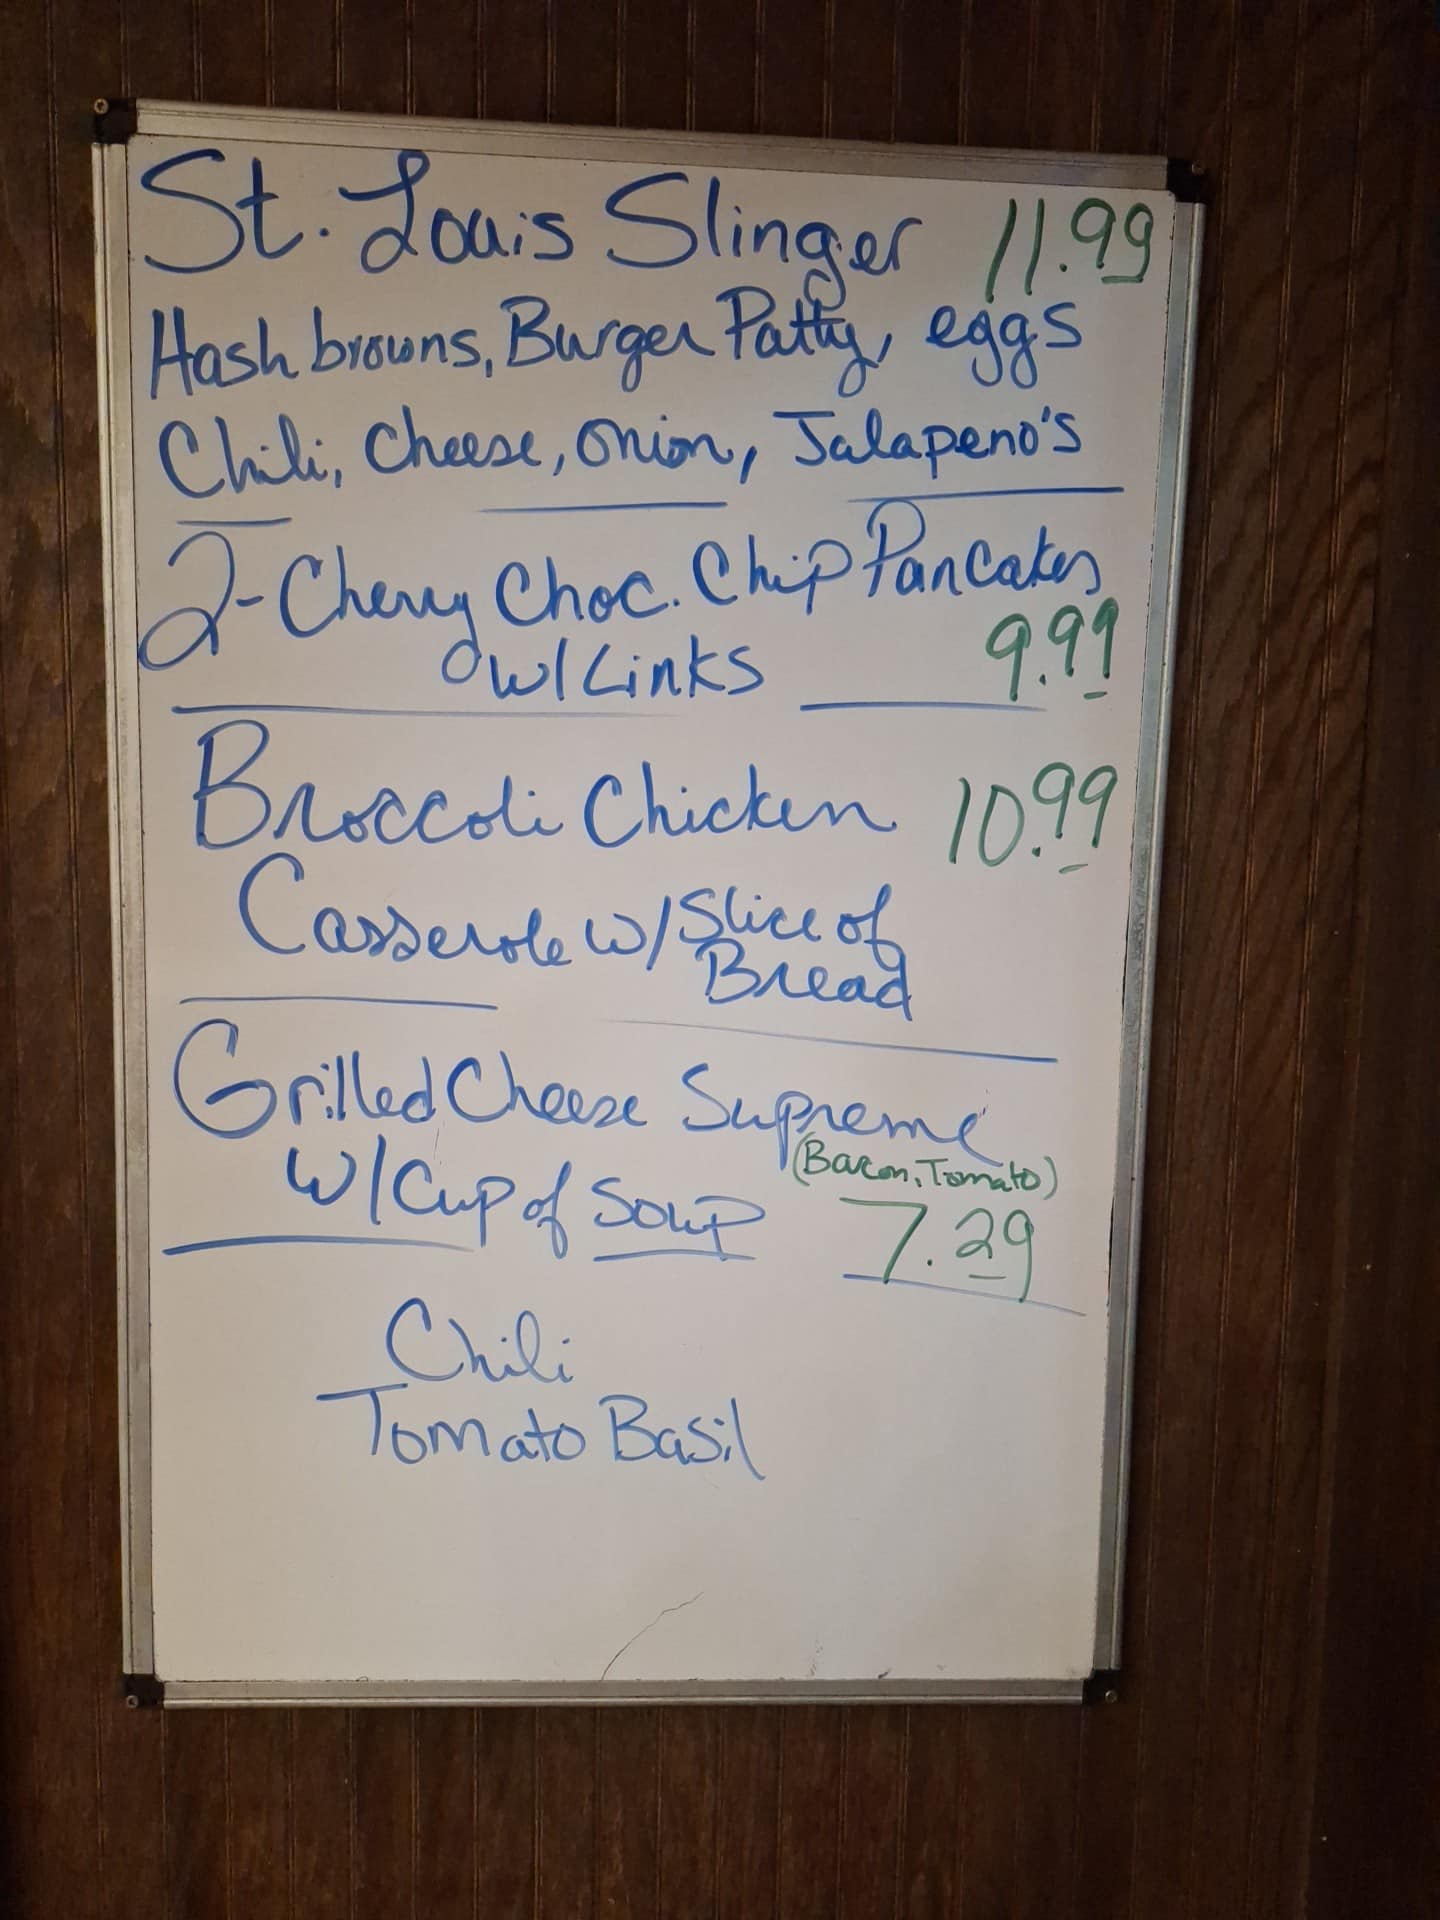 St. Louis Slinger 11.99
Hash browns, Burger Patty, eggs
Chili, Cheese, Onion, Jalapeno's
2-Cherry Choc. Chip Pancakes
w/Links 9.99
Broccoli Chicken 10.99
Casserole w/Slice of
Bread
Grilled Cheese Supreme
(Bacon, Tomato)
w/Cup of Soup 7.29
Chili
Tomato Basil